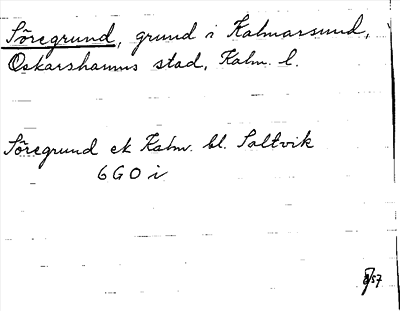 Söregrund, grund i Kalmarsund,
Oskarshamns stad, Kalm. l.
Söregrund ek Kalm. bl. Saltvik
6 G 0 i